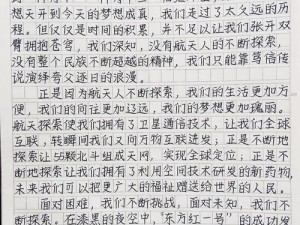 想天开到今天的梦想成真，我们走过了太久远的历
程。但仅仅是时间的积累，并不足以让我们张开双
臂拥抱苍穹，我们深知，没有航天人的不断探索，
没有整个民族不断超越的精神，我们只能靠笃信传
说演绎夸父逐日的浪漫。
正是因为航天人不断探索，我们的生活更加方
便，我们的向往更加辽远，我们的梦想更加瑰丽。
航天探索使我们拥有了卫星通信技术，让我们全球
互联，转瞬间我们又向万物互联进发；正是不断地
探索让55颗北斗组成天网，实现全球定位；正是不
断地探索让我们拥有了利用空间技术研发的新药物，
未来我们可以把更广大的福祉赠送给世界的人民。
面对困难，我们不断挑战，面对未知，我们不
断探索。在漆黑的夜空中，“东方红一号”的成功发